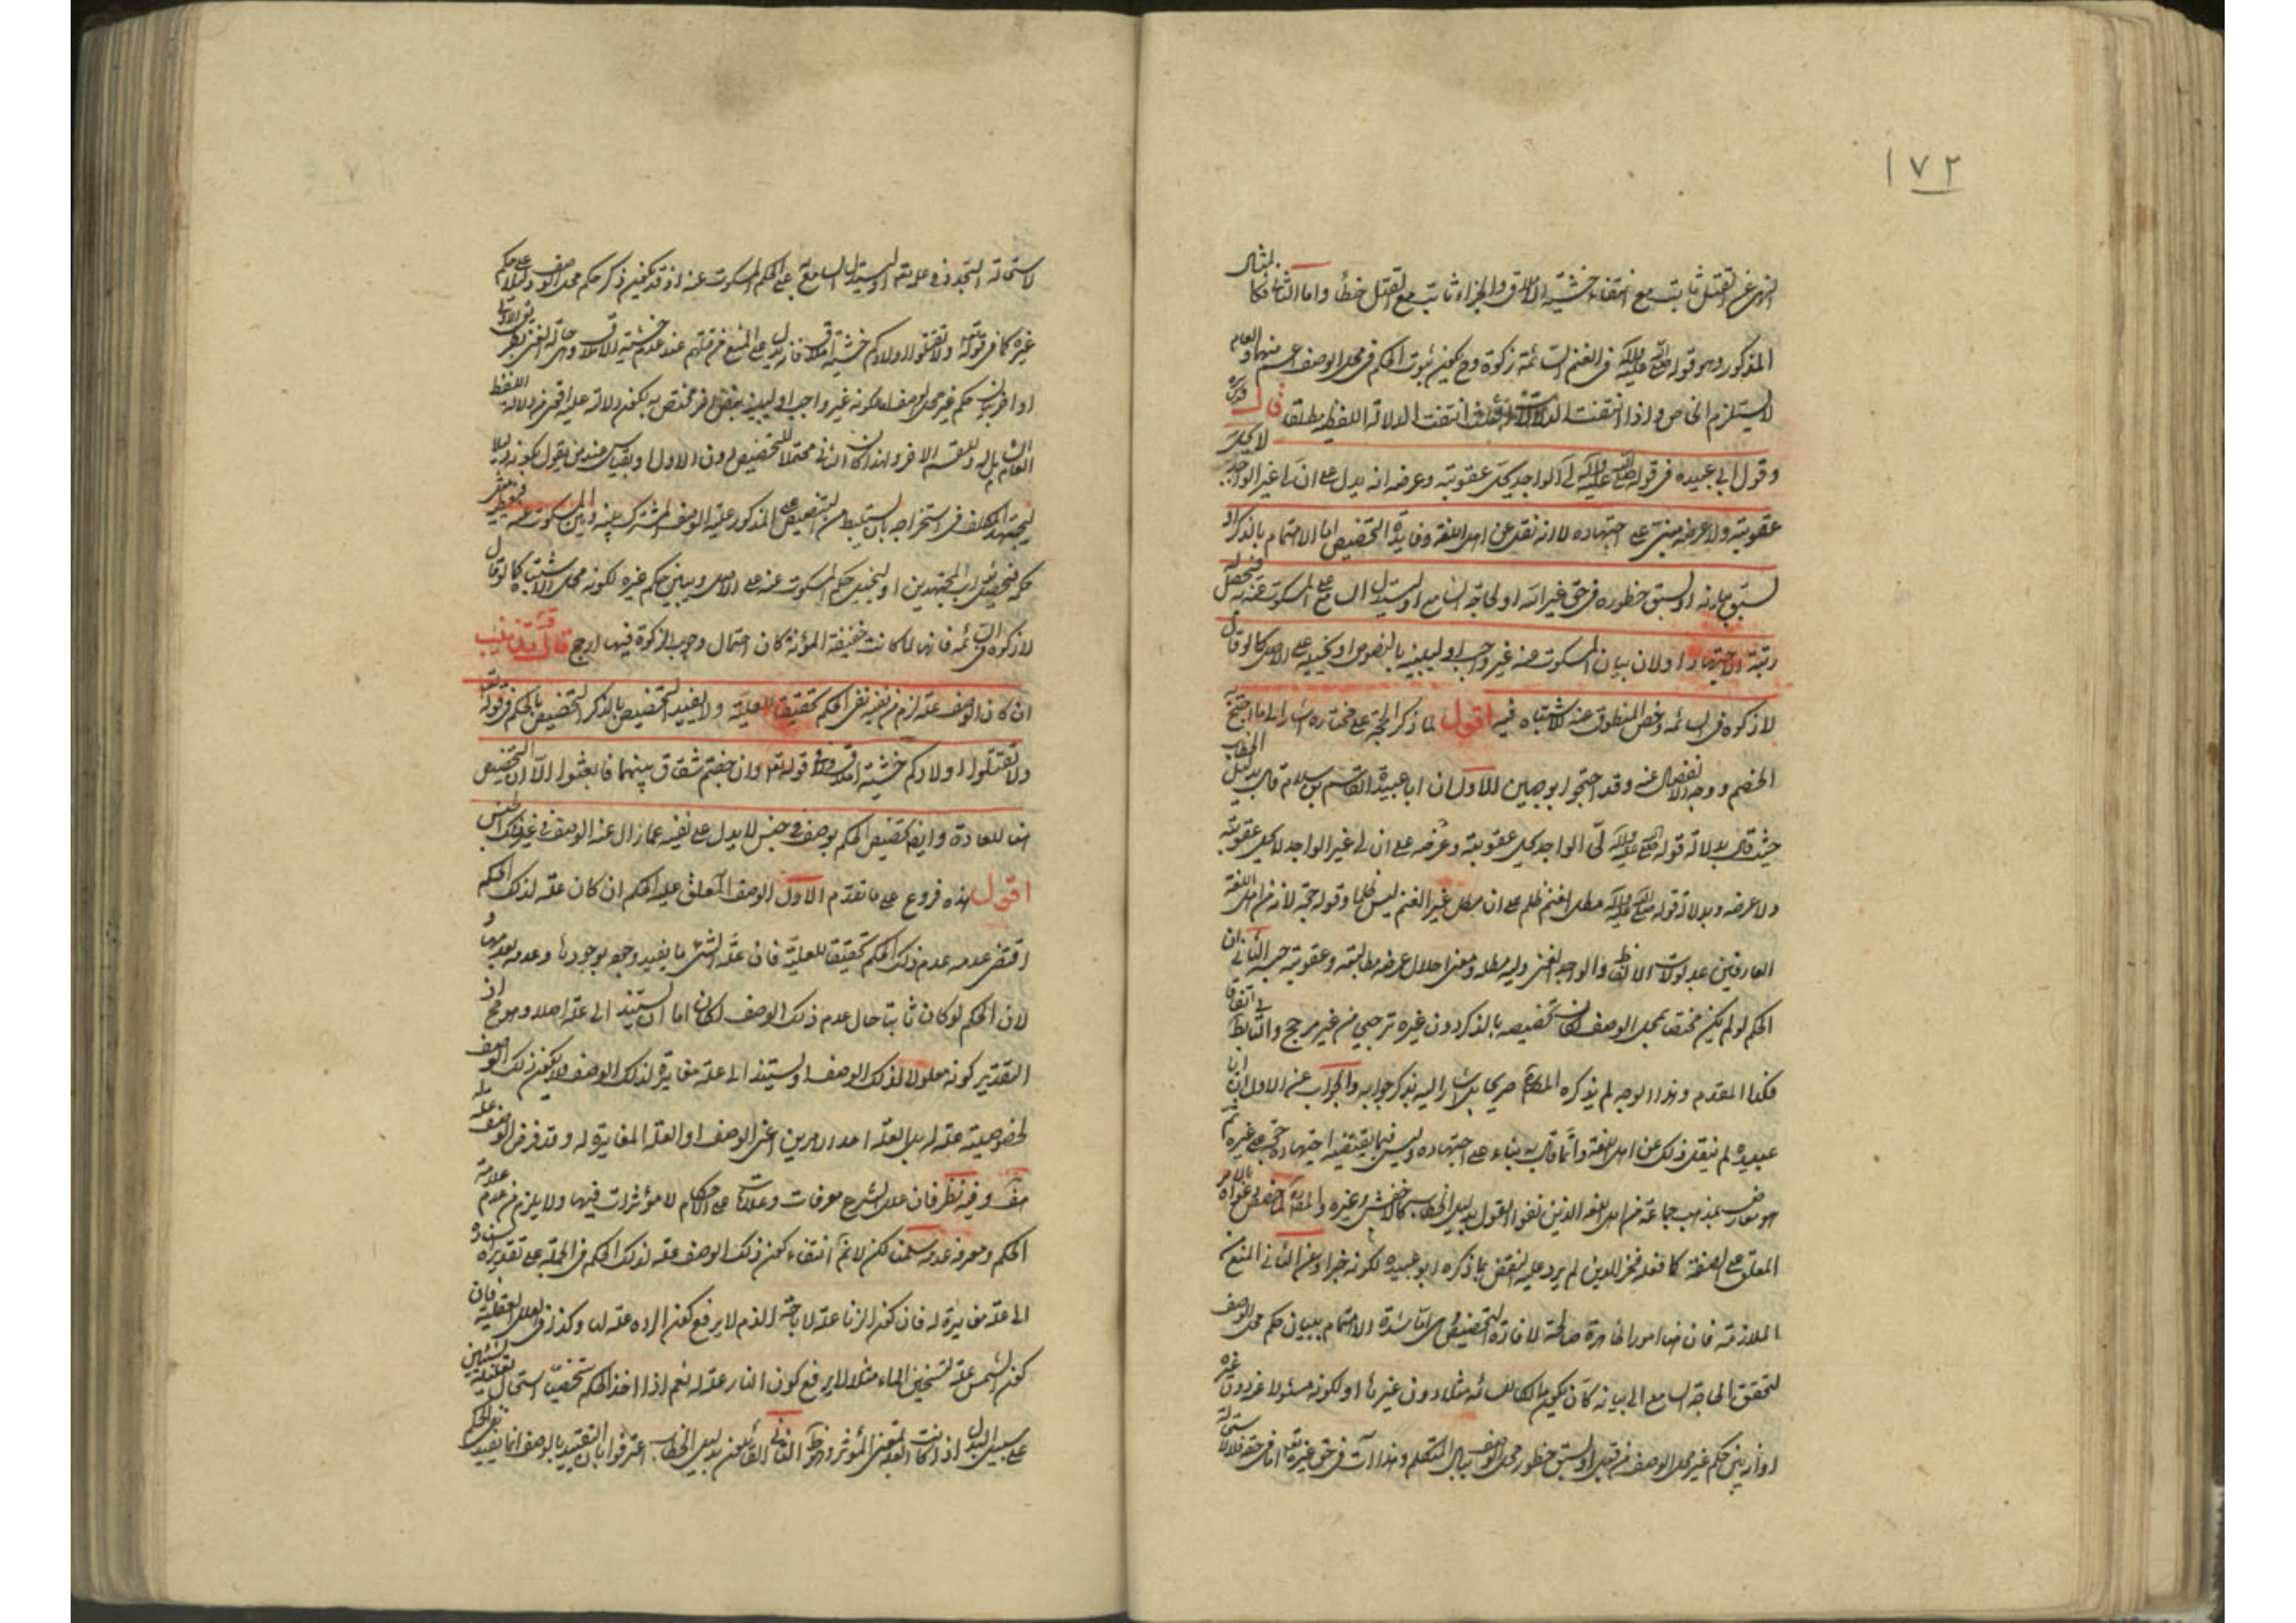 ١٧٢
النهي عن القتل ثابت مع انتفاء خشية الاملاق والجزاء ثابت مع القتل خطأ واما الثانية فكا لمثال
المذكور وهو قوله صلى الله عليه وآله في الغنم السائمة زكوة وح يكون ثبوت الحكم في محل الوصف اعم منها والعام
لا يستلزم الخاص واذا انتفت الدلالات الثلث انتفت الدلالة اللفظية مطلقا قال قدس
وقول ابي عبيده في قوله صلى الله عليه وآله لي الواجد يحل عقوبته وعرضه انه يدل على ان لي غير الواجد لا يحل
عقوبته ولا عرضه مبني على اجتهاده لا انه نقل عن اهل اللغة وفايدة التخصيص اما الاهتمام بالذكر او
لسبق بيانه او لسبق خطوره في حق غير الله او لحاجة السامع او ليستدل السامع على المسكوت عنه فيحصل له
رتبة الاجتهاد او لان بيان المسكوت عنه غير واجب او ليبينه بالنصوص او يخليه على الاصل كما لو قال
لا زكوة في السائمه وخص المنطوق عنه للاشتباه فيه اقول لما ذكر الحجة على مختاره اشار الى ما احتج به
الخصم ووجه الانفصال عنه وقد احتجوا بوجهين الاول ان ابا عبيدة القاسم بن سلام قال بدليل الخطاب
حيث قال بدلالة قوله صلى الله عليه وآله لي الواجد يحل عقوبته وعرضه على ان لي غير الواجد لا يحل عقوبته
ولا عرضه وبدلالة قوله صلى الله عليه وآله مطل الغني ظلم على ان مطل غير الغني ليس ظلما وقوله حجة لانه من اهل اللغة
العارفين بمدلولات الالفاظ والواجد الغني وليه مطله ومعنى احلال عرضه مطالبته وعقوبته حبسه الثاني ان
الحكم لو لم يكن مختصا بمحل الوصف لكان تخصيصه بالذكر دون غيره ترجيحا من غير مرجح والتالي بط اتفاقا
فكذا المقدم وهذا الوجه لم يذكره المصنف صريحا بل اشار اليه بذكر جوابه والجواب عن الاول ان ابا
عبيده لم ينقل ذلك عن اهل اللغة وانما قال به بناء على اجتهاده وليس فيما يقتضيه اجتهاده حجة على غيره ثم
هو معارض بمذهب جماعة من اهل اللغة الذين نفوا القول بدليل الخطاب كالاخفش وغيره والمص لما خص دعواه بالامر
المعلق على الصفة كما فعله فخر الدين لم يرد عليه النقض بما ذكره ابو عبيده لكونه خبرا وعن الثاني المنع من
الملازمة فان هنا امورا ظاهرة صالحة لافادة التخصيص هي فائدة الاهتمام ببيان حكم محل الوصف
لتحقق الحاجة السامع الى بيانه كان يكون مالكا للسائمه مثلا دون غيرها او لكونه مسئولا عنه دون غيره
او ان بيّن حكم غير محل الوصف من قبل او لسبق خطور محل الوصف ببال المتكلم وهذا آت في حق غيره تع اما في حقه فلا لا ستحالة
لاستحالة التجدد في علومه او ليستدل السامع به على الحكم المسكوت عنه اذ قد يكون ذكر حكم محل الوصف دليلا على حكم
غيره كما في قوله تع ولا تقتلوا اولادكم خشية املاق فانه يدل على المنع من قتلهم عند عدم خشية الاملاق وهي حالة الغنى بطريق الاولى
او لان بيان حكم غير محل الوصف لكونه غير واجب او ليبينه بنص اخر مختص به ليكون دلالته عليه اقوى من دلالة اللفظ
العام الشامل له وللقسم الاخر ولهذا كان الثاني محتملا للتخصيص دون الاول او بقياس عند من يقول بكونه دليلا
ليجتهد المكلف في استخراجه بان يستنبط من التنصيص على المذكور علية الوصف المشترك بينه وبين المسكوت عنه
حكمه فيحصل له ثواب المجتهدين او ليخلي حكم المسكوت عنه على الاصل ويبين حكم غيره لكونه محل الاشتباه كما لو قال
لا زكوة في السائمه فانها لما كانت خفيفة المؤنة كان احتمال وجوب الزكوة فيها ارجح قال قدس تذنيب
ان كان الوصف علة لزم من نفيه نفي الحكم تحقيقا للعلية ولا يفيد التخصيص بالذكر التخصيص بالحكم في قوله تع
ولا تقتلوا اولادكم خشية املاق وفي قوله تع وان خفتم شقاق بينهما فابعثوا الآية لان التخصيص
هنا للعادة وايضا تخصيص الحكم بوصف في جنس لا يدل على نفيه عما زال عنه الوصف في غير ذلك الجنس
اقول هذه فروع على ما تقدم الاول الوصف المعلق عليه الحكم ان كان علة لذلك الحكم
اقتضى عدمه عدم ذلك الحكم تحقيقا للعلية فان علة الشئ ما يفيد وجوده بوجودها وعدمه بعدمها و
لان الحكم لو كان ثابتا حال عدم ذلك الوصف لكان اما ان لا يستند الى علة اصلا وهو مح اذ
التقدير كونه معلولا لذلك الوصف او يستند الى علة مغايرة لذلك الوصف فلا يكون ذلك الوصف
لخصوصيته علة له بل العلة احد الامرين اعني الوصف او العلة المغايرة له وقد فرض الوصف علة
هف وفيه نظر فان علل الشرع معرفات وعلامات على الاحكام لا مؤثرات فيها ولا يلزم من عدم علامة
الحكم ومعرفه عدمه سلمنا لكن لا نم انتفاء كون ذلك الوصف علة لذلك الحكم في الجملة على تقدير اسناده
الى علة مغايرة له فان كون الزنا علة لاباحة الدم لا يرفع كون الرده علة لها وكذا في العلل العقلية فان
كون الشمس علة لتسخين الماء مثلا لا يرفع كون النار علة له نعم اذا اخذ الحكم شخصيا استحال تعليله بشيئين
على سبيل البدل اذا كانت العلة بمعنى المؤثر وهو ظ الثاني القائلون بدليل الخطاب اعترفوا بان التقييد بالوصف انما يفيد نفي الحكم